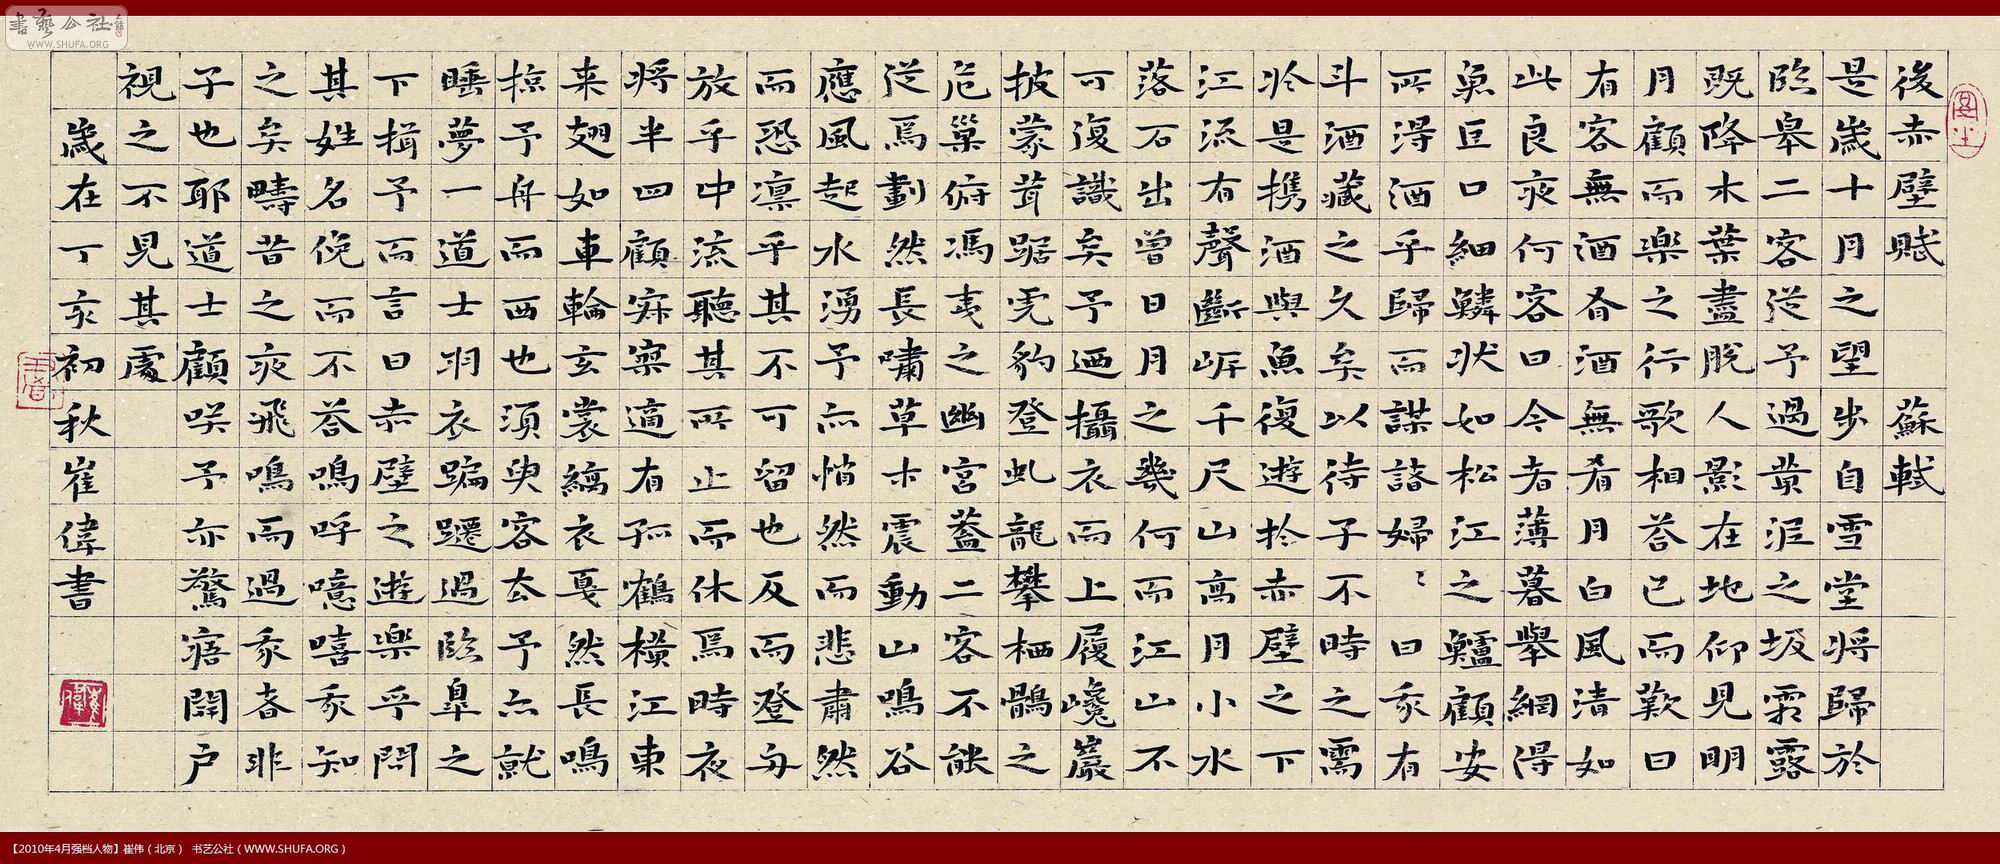 後赤壁賦 蘇軾
是歲十月之望步自雪堂將歸於
臨皋二客從予過黃泥之坂霜露
既降木葉盡脫人影在地仰見明
月顧而樂之行歌相答已而歎曰
有客無酒有酒無肴月白風清如
此良夜何客曰今者薄暮舉網得
魚巨口細鱗狀如松江之鱸顧安
所得酒乎歸而謀諸婦〻曰我有
斗酒藏之久矣以待子不時之需
於是携酒與魚復遊於赤壁之下
江流有聲斷岸千尺山高月小水
落石出曾日月之幾何而江山不
可復識矣予迺攝衣而上履巉巖
披蒙茸踞虎豹登虬龍攀栖鶻之
危巢俯馮夷之幽宮蓋二客不能
從焉劃然長嘯草木震動山鳴谷
應風起水湧予亦悄然而悲肅然
而恐凛乎其不可留也反而登舟
放乎中流聽其所止而休焉時夜
將半四顧寂寥適有孤鶴橫江東
来翅如車輪玄裳縞衣戛然長鳴
掠予舟而西也須臾客去予亦就
睡夢一道士羽衣蹁躚過臨皋之
下揖予而言曰赤壁之遊樂乎問
其姓名俛而不答嗚呼噫嘻我知
之矣疇昔之夜飛鳴而過我者非
子也耶道士顧咲予亦驚寤開户
視之不見其處
歲在丁亥初秋崔偉書
書藝公社
WWW.SHUFA.ORG
【2010年4月强档人物】崔伟（北京） 书艺公社（WWW.SHUFA.ORG）